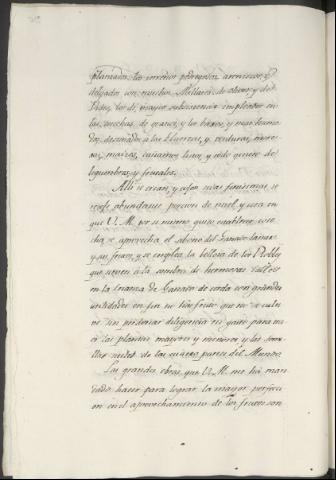 plantados, los terrenos pedregosos, areniscos, y
delgados con muchos Millares de olivos y de
Vides, los de mayor substancia empleados en
las mechas de granos, y los buenos, y mas hume
dos, destinados a las Huertas, y verduras, more
ras, maizes, cañamos, linos, y todo genero de
legumbres y frutales.
Alli se crian, y cejen sedas finisimas, se
coge abundante porcion de miel, y cera en
que V. M. por si mismo quiso establecer cose
cha, se aprovecha el sabroso del Ganado lanar
y su fruto, y se emplea la bellota de los Robles
que sirven à la sombra de hermosos valles
en la crianza de Ganado de cerda con grandes
utilidades en fin no hai fruto que no se culti
ve sin perdonar diligencia ni gasto para tra
er las plantas mayores y menores y las semi
llas utiles de las quatro partes del Mundo.
Las grandes obras que V. M. me hà man
dado hacer para lograr la mayor perfecci
on en el aprovechamiento de los frutos son